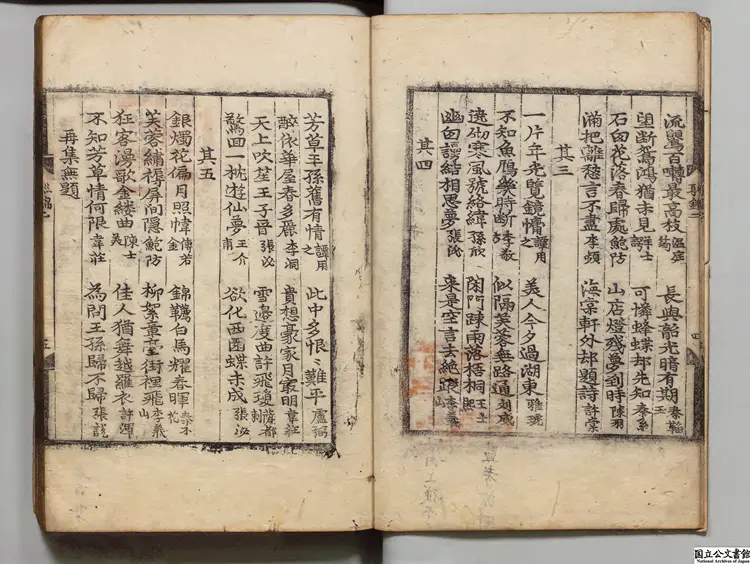 流鶯百囀最高枝 溫庭筠 長與韶光暗有期 秦韜玉
望斷鴛鴻猶未見 可憐蜂蝶却先知 秦系
石臼花落春歸處 鮑防 山店燈殘夢到時 陳羽
滿把離愁言不盡 李頻 海棠軒外却題詩 許棠
其三
一片年光覽鏡情 譚用之 美人今夕過湖東 雅琥
不知魚鴈幾時斷 似隔芙蓉無路通 劉威
遶砌寒風號絡緯 孫欣 閑門踈雨落梧桐 王士熙
結相思夢 張泌 來是空言去絶蹤 李義山
其四
芳草王孫舊有情 譚用之 此中多恨〻難平 盧弼
醉依華屋春多麗 李洞 貴想豪家月最明 韋莊
天上吹笙王子晉 張泌 雪邊度曲許飛瓊 薩都剌
驚回一枕遊仙夢 王介甫 欲化西園蝶未成 張泌
其五
銀燭花偏月照幃 傅若金 錦韉白馬耀春暉 泰不花
芙蓉繡褥屏間隱 鮑防 柳絮章臺街裡飛 李義山
狂客漫歌金縷曲 佳人猶舞越羅衣 許渾
不知芳草情何限 韋莊 為問王孫歸不歸 張說
再集無題
国立公文書館
National Archives of Japan